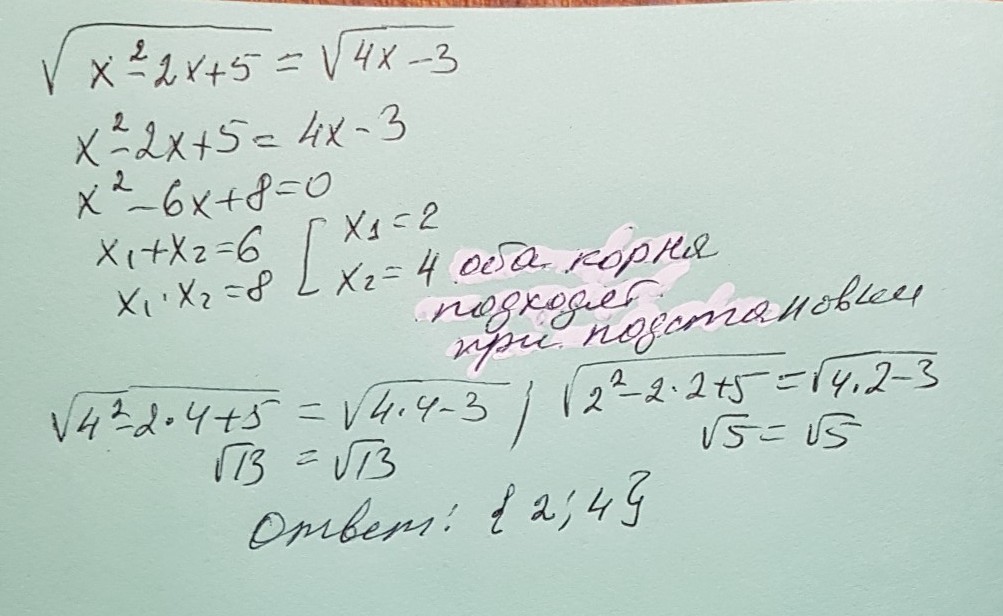 √x²-2x+5 = √4x-3
x²-2x+5 = 4x-3
x²-6x+8=0
x₁+x₂=6 [ x₁=2
x₁·x₂=8 x₂=4 оба корня
подходят
при подстановки
√4²-2·4+5 = √4·4-3 ; √2²-2·2+5 = √4·2-3
√13 = √13 √5 = √5
Ответ: {2;4}